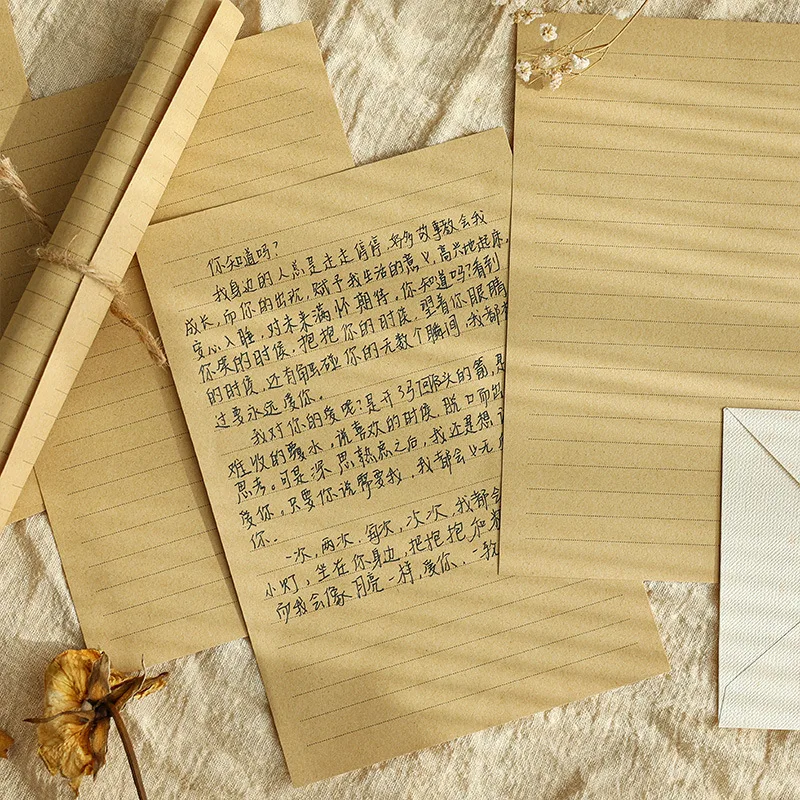 你知道吗?
我身边的人总是走走停停,好多故事教会我
成长,而你的出现,赋予我生活的意义,高兴地起床,
安心入睡,对未来满怀期待,你知道吗?看到
你笑的时候,抱抱你的时候,望着你眼睛
的时候,还有触碰你的无数个瞬间,我都
过要永远爱你。
我对你的爱呢?是开弓没有回头的箭,是
难收的覆水,说喜欢的时候,脱口而出
思考。可是深思熟虑之后,我还是想
爱你,只要你说需要我,我都会义无
你.
一次,两次,每次,次次,我都会
小灯,坐在你身边,把抱抱和
而我会像月亮一样,爱你,一